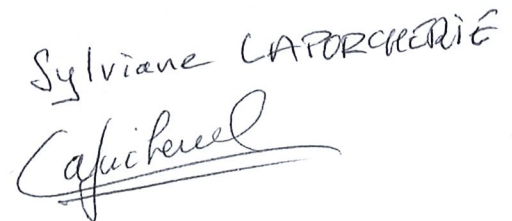 Sylviane LAPORCHERIE